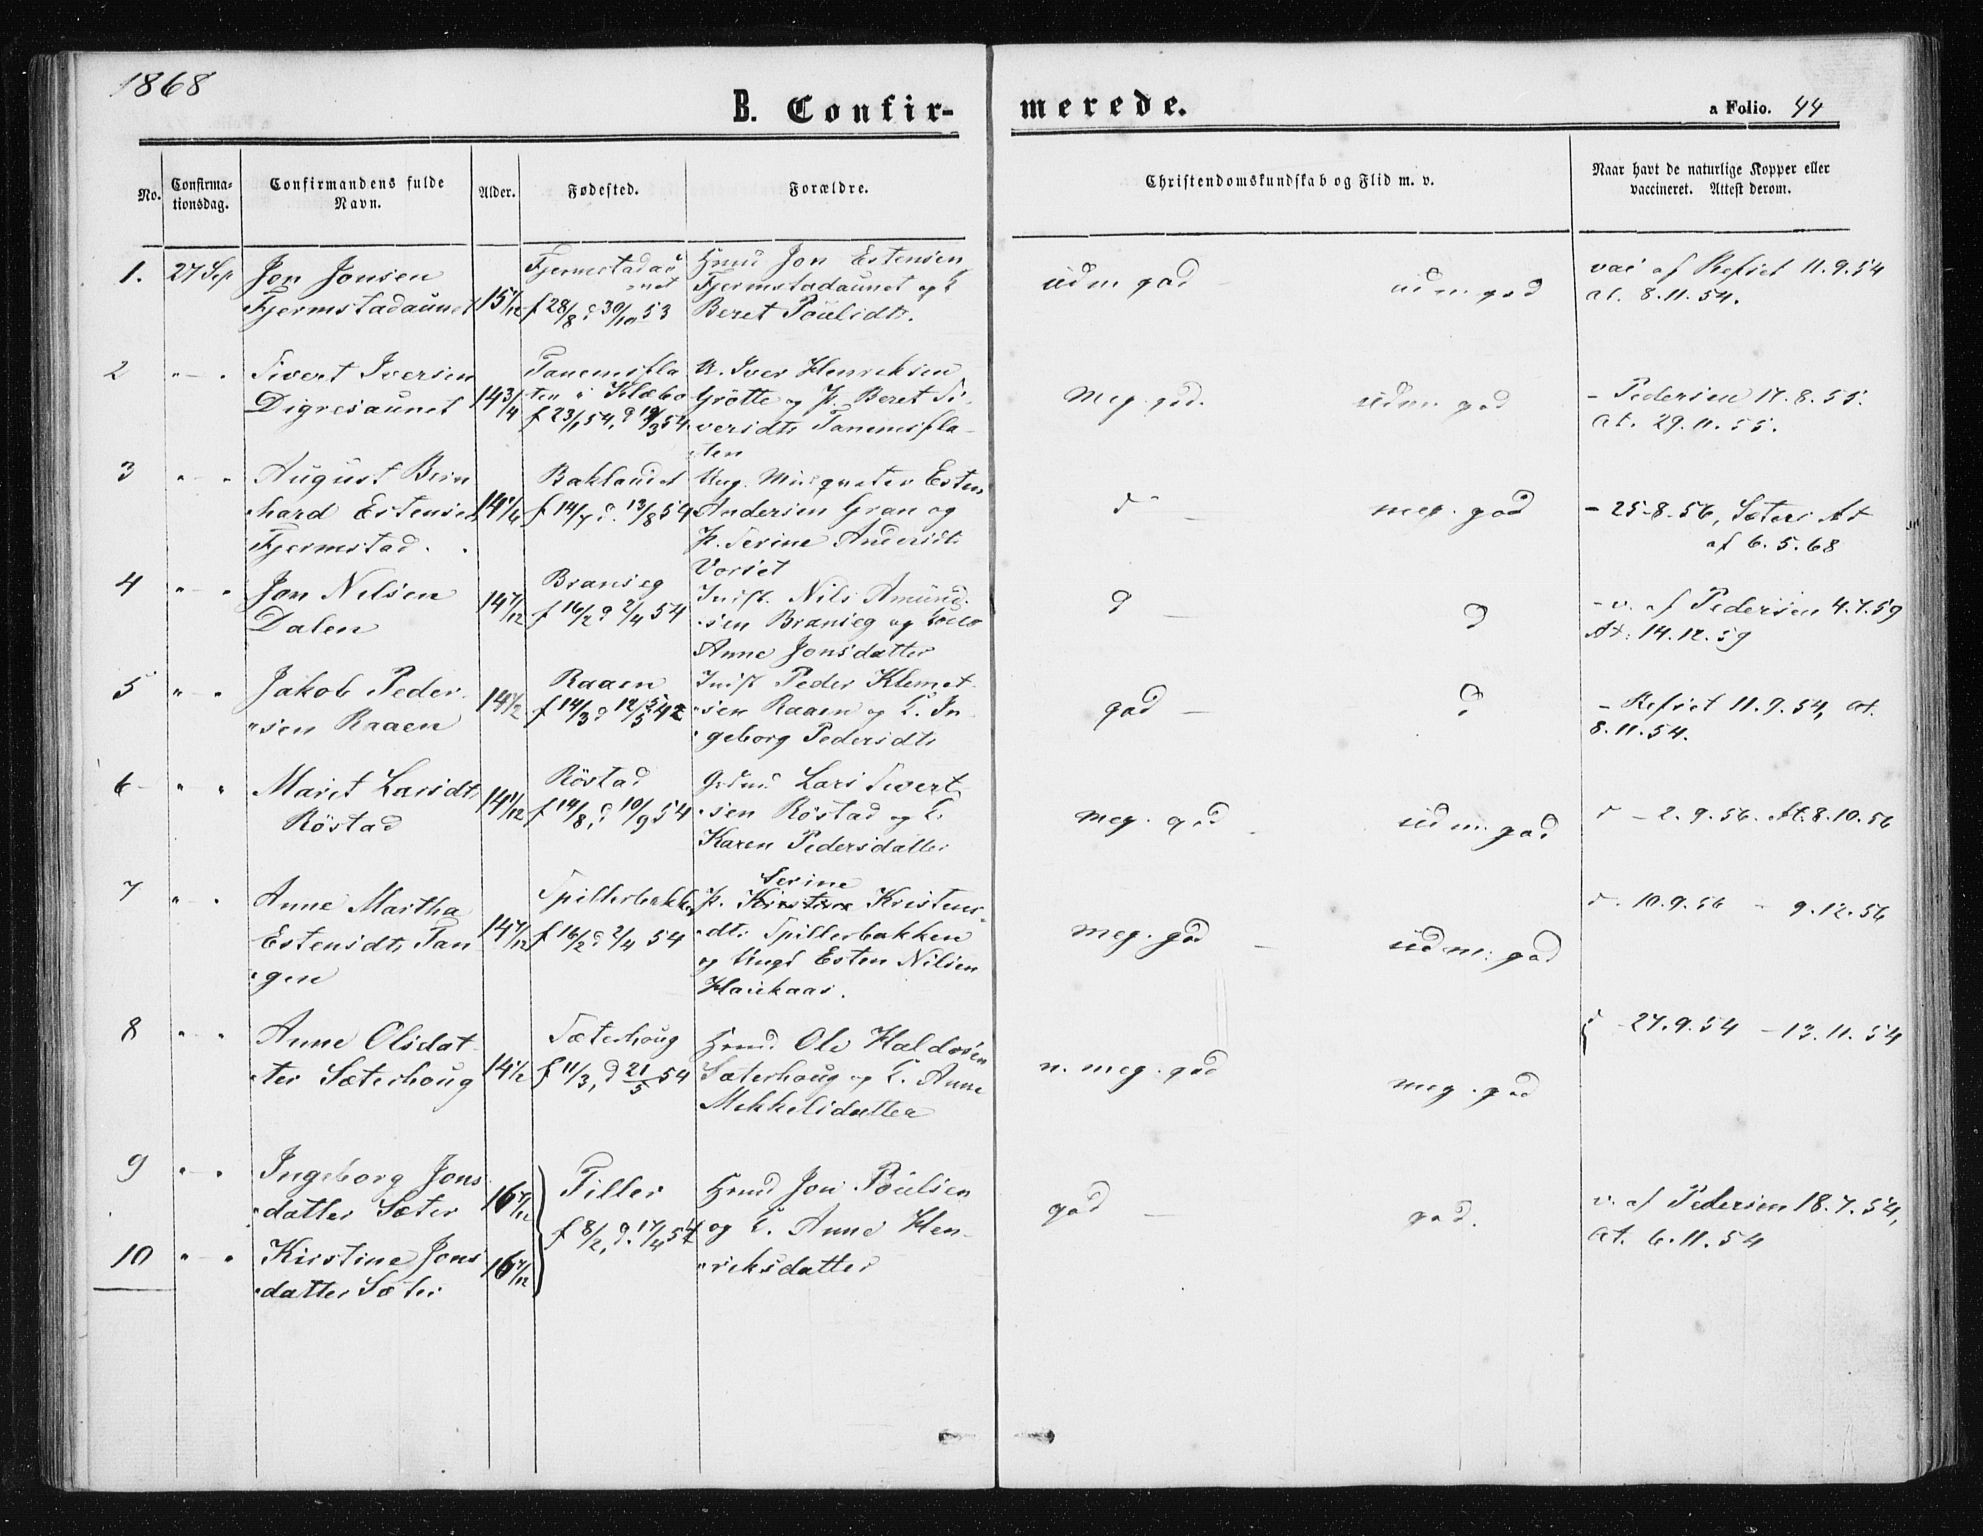 1868
B. Confir-
merede.
a Folio. 44
No.
Confirma-
tionsdag.
Confirmandens fulde
Navn.
Alder.
Fødested.
Forældre.
Christendomskundskab og Flid m. v.
Naar havt de naturlige Kopper eller
vaccineret. Attest derom.
1. 27 Sep Jon Jonsen
Fjermstadaunet
15 1/12
Fjermstadau
net
f 28/8 d 30/10 53
Hmd Jon Estensen
Fjermstadaunet og
Beret Poulsdt.
udm. god - udm. god
vac af Refset 11.9.54
at. 8.11.54.
2 " - " Sivert Iversen
Digresaunet
14 3/4
Tanemsfla
ten i Klæbo
f 23/1 54, d 19/3 54
U. Iver Henriksen
Grøtte og P. Beret Si-
versdt. Tanemsfla-
ten
meg. god. udm. god
- Pedersen 17.8.55.
at. 29.11.55.
3 " - " August Bern
hard Estensen
Fjermstad.
14 1/4
Baklandet
f 14/7 d. 13/8 54
Ung. Musqueter Esten
Andersen Gran og
P. Serine Andersdt.
Vorset
d - meg. god
- 25-8-56, Sæters At
af 6.5.68
4 " - " Jon Nilsen
Dalen
14 7/12
Branseg
f 16/2 d 2/4 54
Indst. Nils Amund
sen Branseg og
Anne Jonsdatter
d - d
- v. af Pedersen 4.7.59
At: 14.12.59
5 " - " Jakob Peder
sen Raaen
14 1/2
Raaen
f 14/3 d 12/5 54
Indst Peder Klemet
sen Raaen og In
geborg Pedersdt.
god - d
- Refset 11.9.54, at.
8.11.54.
6 " " Marit Larsdt.
Röstad
14 1/12
Röstad
f 14/8, d 10/9 54
Lars Sivert
sen Röstad og
Karen Pedersdatter
meg. god - udm. god
d - 2.9.56. At. 8.10.56
7 " - " Anne Martha
Estensdt. Tan
gen
14 7/12
Spillerbakken
f 16/2 d 2/4 54
Serine
P. Kirstine Kristens-
dt. Spillerbakken
og Ungk Esten Nilsen
Haukaas.
meg. god - udm. god
d. 10.9.56 - 9.12.56
8 " - " Anne Olsdat
ter Sæterhoug
14 1/2
Sæterhoug
f 11/3, d 21/5 54
Hmd Ole Haldosen
Sæterhoug og Anne
Mikkelsdatter
n. meg. god meg. god
d - 27.9.54 - 13.11.54
9 " - " Ingeborg Jons
datter Sæter
16 7/12
Tiller
f 8/2, d. 17/4 54
Hmd Jon Poulsen
og Anne Hen-
riksdatter
god - god.
v. af Pedersen 18.7.54,
at. 6.11.54
10 " - " Kirstine Jons
datter Sæter
16 7/12